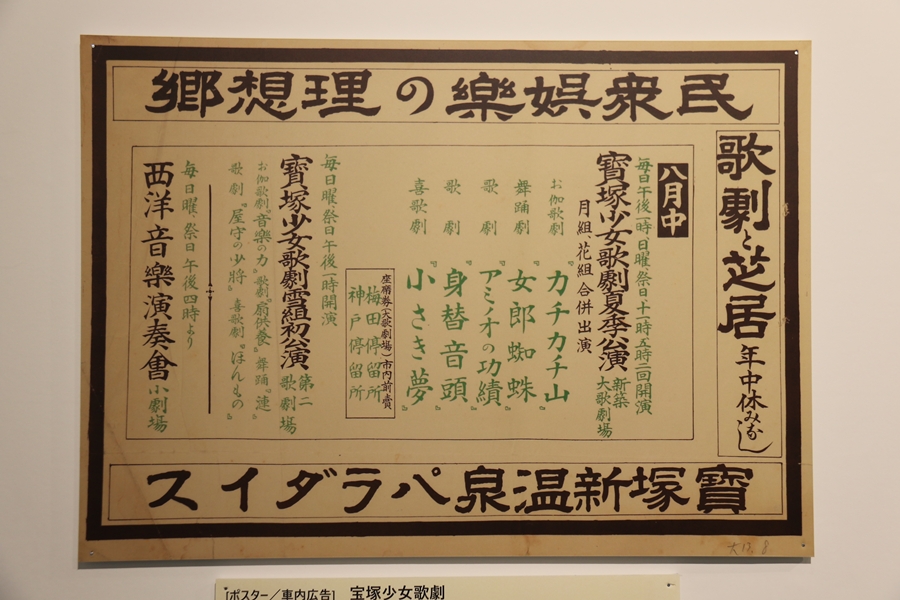 民衆娯樂の理想郷
歌劇と芝居 年中休みなし
八月中
毎日午後一時日曜、祭日十一時五時二回開演
寶塚少女歌劇夏季公演 新築大歌劇場
月組、花組合併出演
お伽歌劇『カチカチ山』
舞踊劇『女郎蜘蛛』
歌劇『アミノオの功績』
歌劇『身替音頭』
喜歌劇『小さき夢』
座席券(大歌劇場)市内前賣
梅田停留所
神戸停留所
毎日曜、祭日午後一時開演
寶塚少女歌劇雪組初公演 第二歌劇場
お伽歌劇『音樂の力』歌劇『扇供養』舞踊『連』
歌劇『屋守の少將』喜歌劇『ほんもの』
毎日曜、祭日午後四時より
西洋音樂演奏會 小劇場
寶塚新温泉パラダイス
大13.8
[ポスター/車内広告] 宝塚少女歌劇